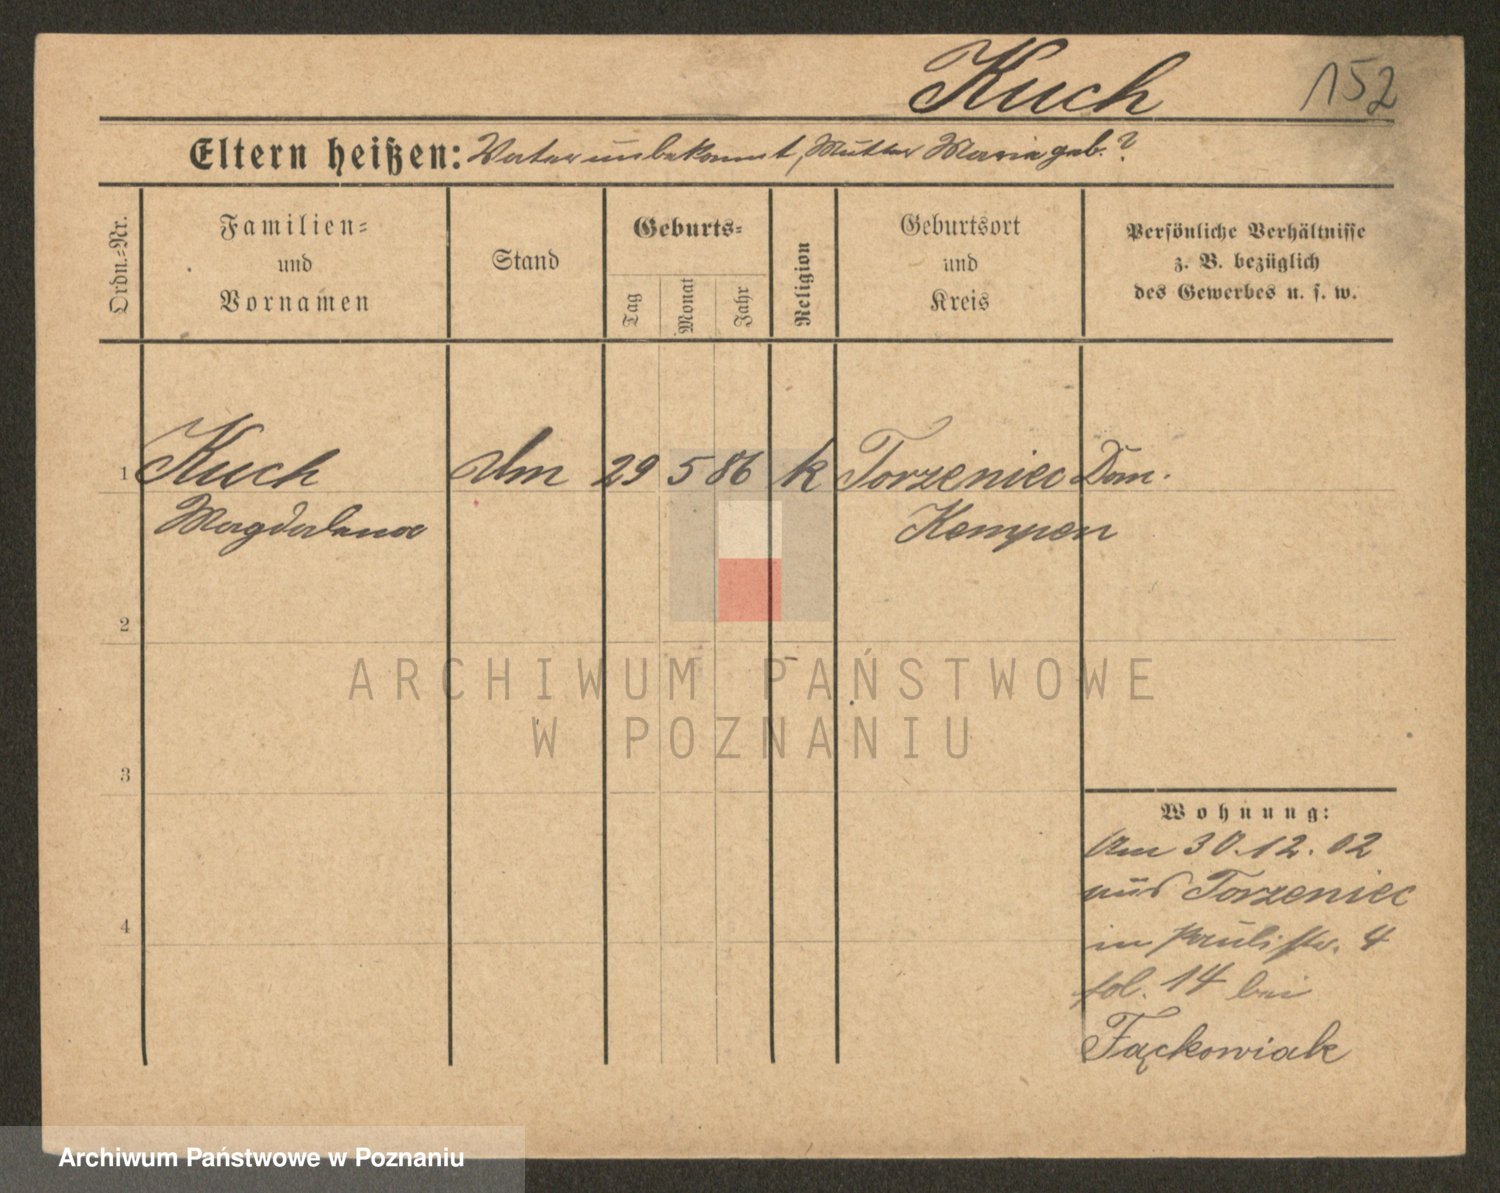 Kuch
152
Eltern heißen: Vater unbekannt, Mutter Maria geb. ?
Ordn.-Nr.
Familien-
und
Vornamen
Stand
Geburts-
Tag
Monat
Jahr
Religion
Geburtsort
und
Kreis
Persönliche Verhältnisse
z. B. bezüglich
des Gewerbes u. s. w.
1 Kuch 29 5 86 k Torzeniec Dom.
Magdalena Kempen
2
3
4
Wohnung:
Am 30.12.02
aus Torzeniec
in Paulistr. 4
fol. 14 bei
Fąckowiak
ARCHIWUM PAŃSTWOWE
W POZNANIU
Archiwum Państwowe w Poznaniu